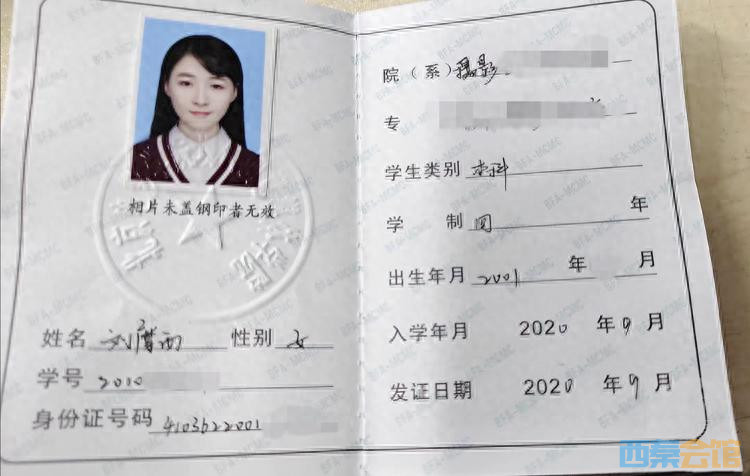 相片未盖钢印者无效
姓名 刘 雨 性别 女
学号 2010
身份证号码 4103622001
院（系）摄影
专
学生类别 本科
学 制 四 年
出生年月 2001 年 月
入学年月 2020 年 9 月
发证日期 2020 年 9 月
BFA-MCMC
西秦会馆